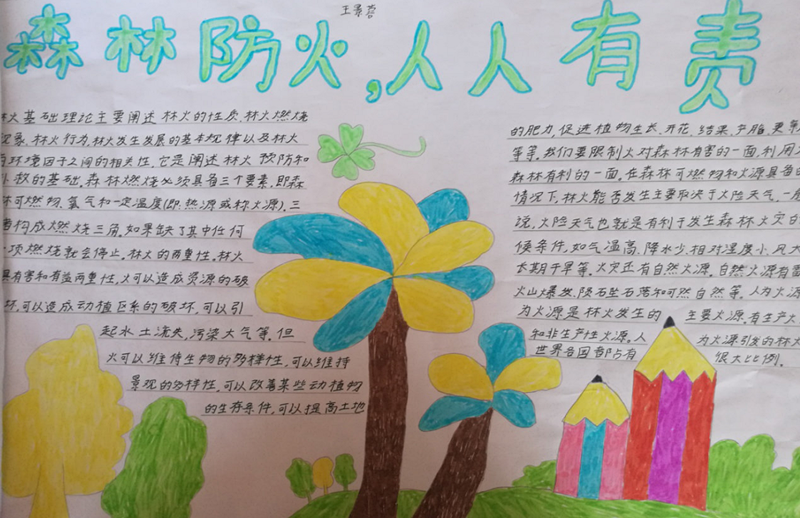 森林防火,人人有责
林火基础理论主要阐述林火的性质.林火燃烧
现象.林火行为.林火发生发展的基本规律以及林火
与环境因子之间的相关性,它是阐述林火预防和
扑救的基础.森林燃烧必须具备三个要素,即森
林可燃物.氧气和一定温度(即热源或称火源).三
者构成燃烧三角,如果缺了其中任何
一项燃烧就会停止.林火的两重性.林火
具有害和有益两重性,火可以造成资源的破
坏,可以造成动植区系的破坏,可以引
起水土流失,污染大气等,但
火可以维持生物的多样性,可以维持
景观的多样性,可以改善某些动植物
的生存条件,可以提高土地
的肥力,促进植物生长.开花.结果.产脂.更新
等等.我们要限制火对森林有害的一面,利用
森林有利的一面.在森林可燃物和火源具备的
情况下,林火能否发生主要取决于火险天气.一般
说,火险天气也就是有利于发生森林火灾的
候条件,如气温高.降水少.相对湿度小.风大
长期干旱等.火灾还有自然火源.自然火源有雷
火山爆发,陨石坠石落和可然自然等.人为火源
为火源是林火发生的主要火源,有生产火
和非生产性火源,人为火源引发的林火
世界各国都占有很大比例.